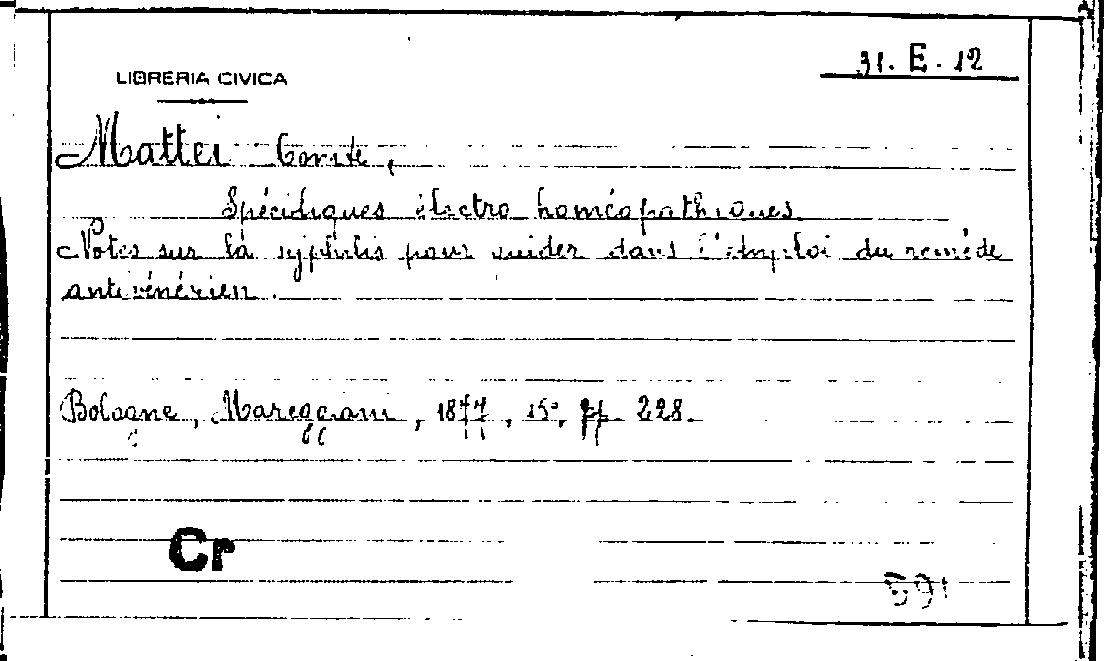 LIBRERIA CIVICA
31. E. 12
Mattei Comte,
Spécifiques électro homéopathiques.
Notes sur la syphilis pour guider dans l'emploi du remède
antivénérien.
Bologne, Mareggiani, 1877, 15°, pp. 228.
Cr
591